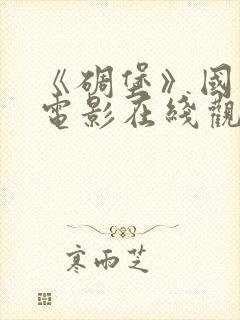 《碉堡》國
電影在綫觀
寒雨芝